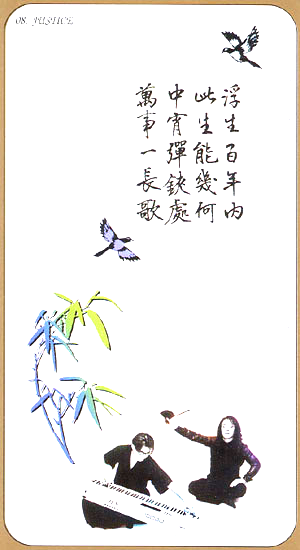 08. JUSTICE
浮生百年內
此生能幾何
中宵彈鋏處
萬事一長歌